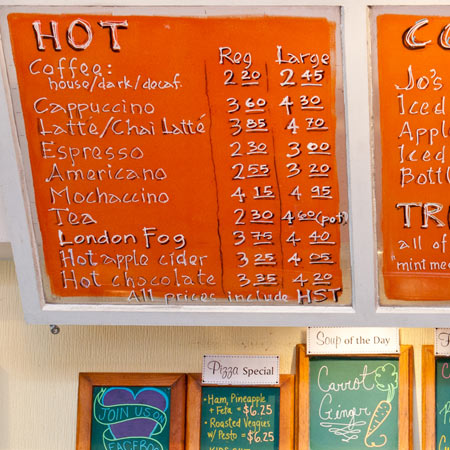 HOT
Reg Large
Coffee:
house/dark/decaf. 2 20 2 45
Cappuccino 3 60 4 30
Latté/Chai Latté 3 85 4 70
Espresso 2 30 3 00
Americano 2 55 3 20
Mochaccino 4 15 4 95
Tea 2 30 4 60 (pot)
London Fog 3 75 4 40
Hot apple cider 3 25 4 05
Hot chocolate 3 35 4 20
All prices include HST
CO
Jo's
Iced
Apple
Iced
Bottl
TR
all of
"mint me
Pizza Special
• Ham, Pineapple
+ Feta = $6.25
• Roasted Veggies
w/ Pesto = $6.25
Soup of the Day
Carrot
Ginger
JOIN US ON
FACEBOOK